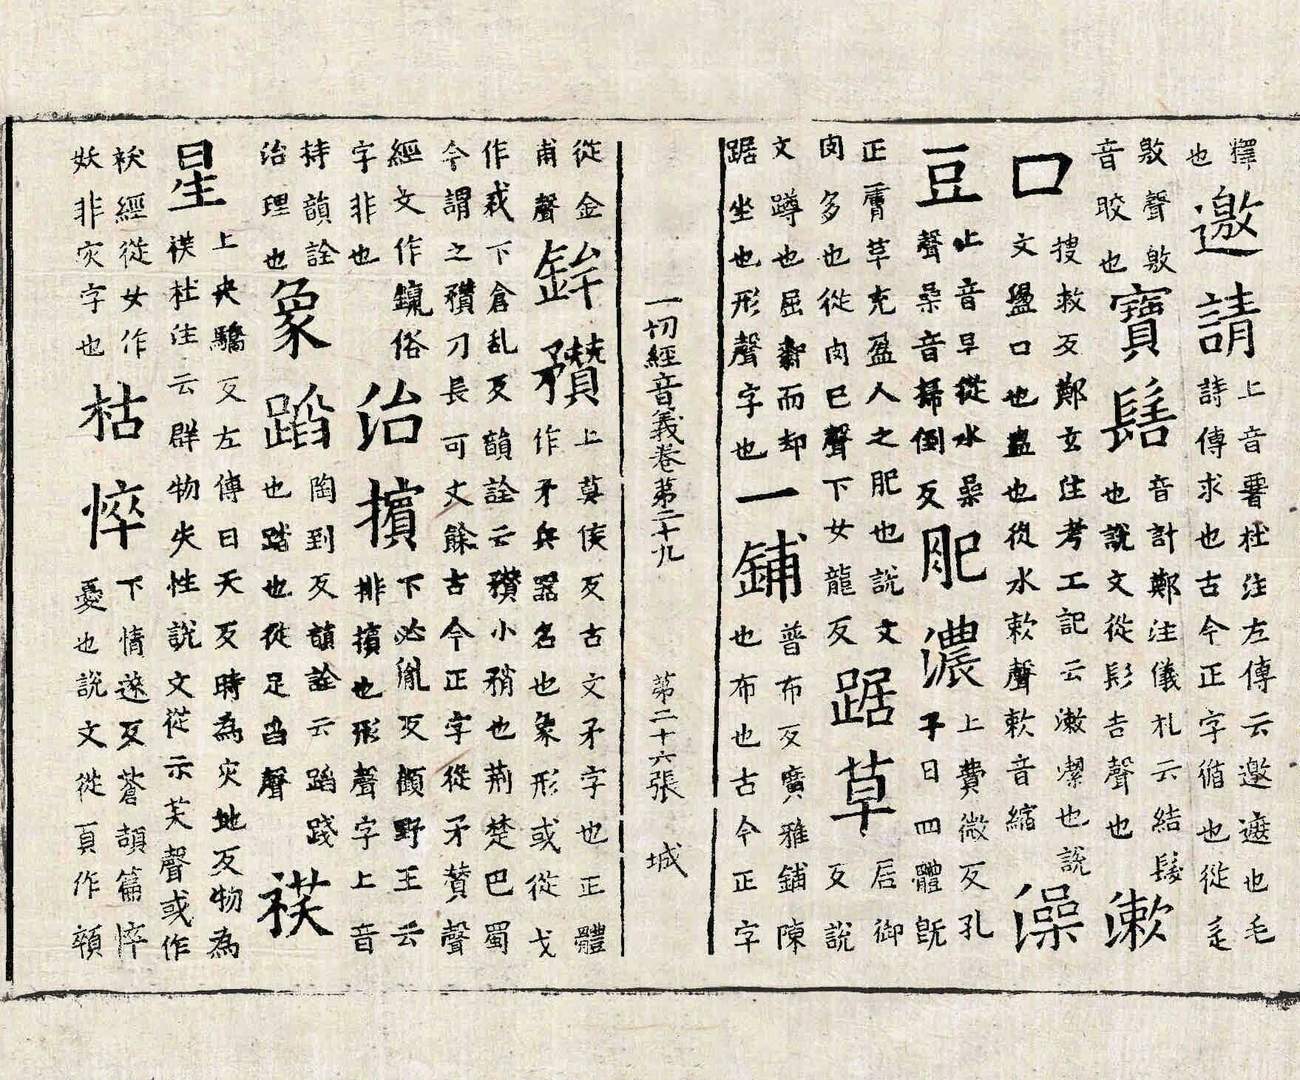 釋也邀請上音署杜注左傳云邀遮也毛詩傳求也古今正字循也從辵
敫聲敫音晈也寶髻音計鄭注儀礼云結髮也說文從髟吉聲也漱
口搜救反鄭玄注考工記云漱潔也說文盪口也盪也從水欶聲欶音縮澡
豆上音早從水喿聲喿音掃倒反肥濃上費微反孔子曰四體既
正膚草充盈人之肥也說文肉多也從肉巳聲下女龍反踞草居御反說
文蹲也屈膝而却踞坐也形聲字也一鋪普布反廣雅鋪陳也布也古今正字
一切經音義卷第二十九 第二十六張 城
從金甫聲鉾穳上莫侯反古文矛字也正體作矛兵器名也象形或從戈
作㦵下倉乱反韻詮云穳小矟也荆楚巴蜀今謂之穳刀長可丈餘古今正字從矛贊聲
經文作鑹俗字非也治擯下必胤反顧野王云排擯也形聲字上音
持韻詮治理也象蹈陶到反韻詮云蹈踐也踏也從足舀聲祅
星上夭驕反左傳曰天反時為灾地反物為祅杜注云群物失性說文從示芺聲或作
袄經從女作妖非灾字也枯悴下情遂反蒼頡篇悴憂也說文從頁作顇